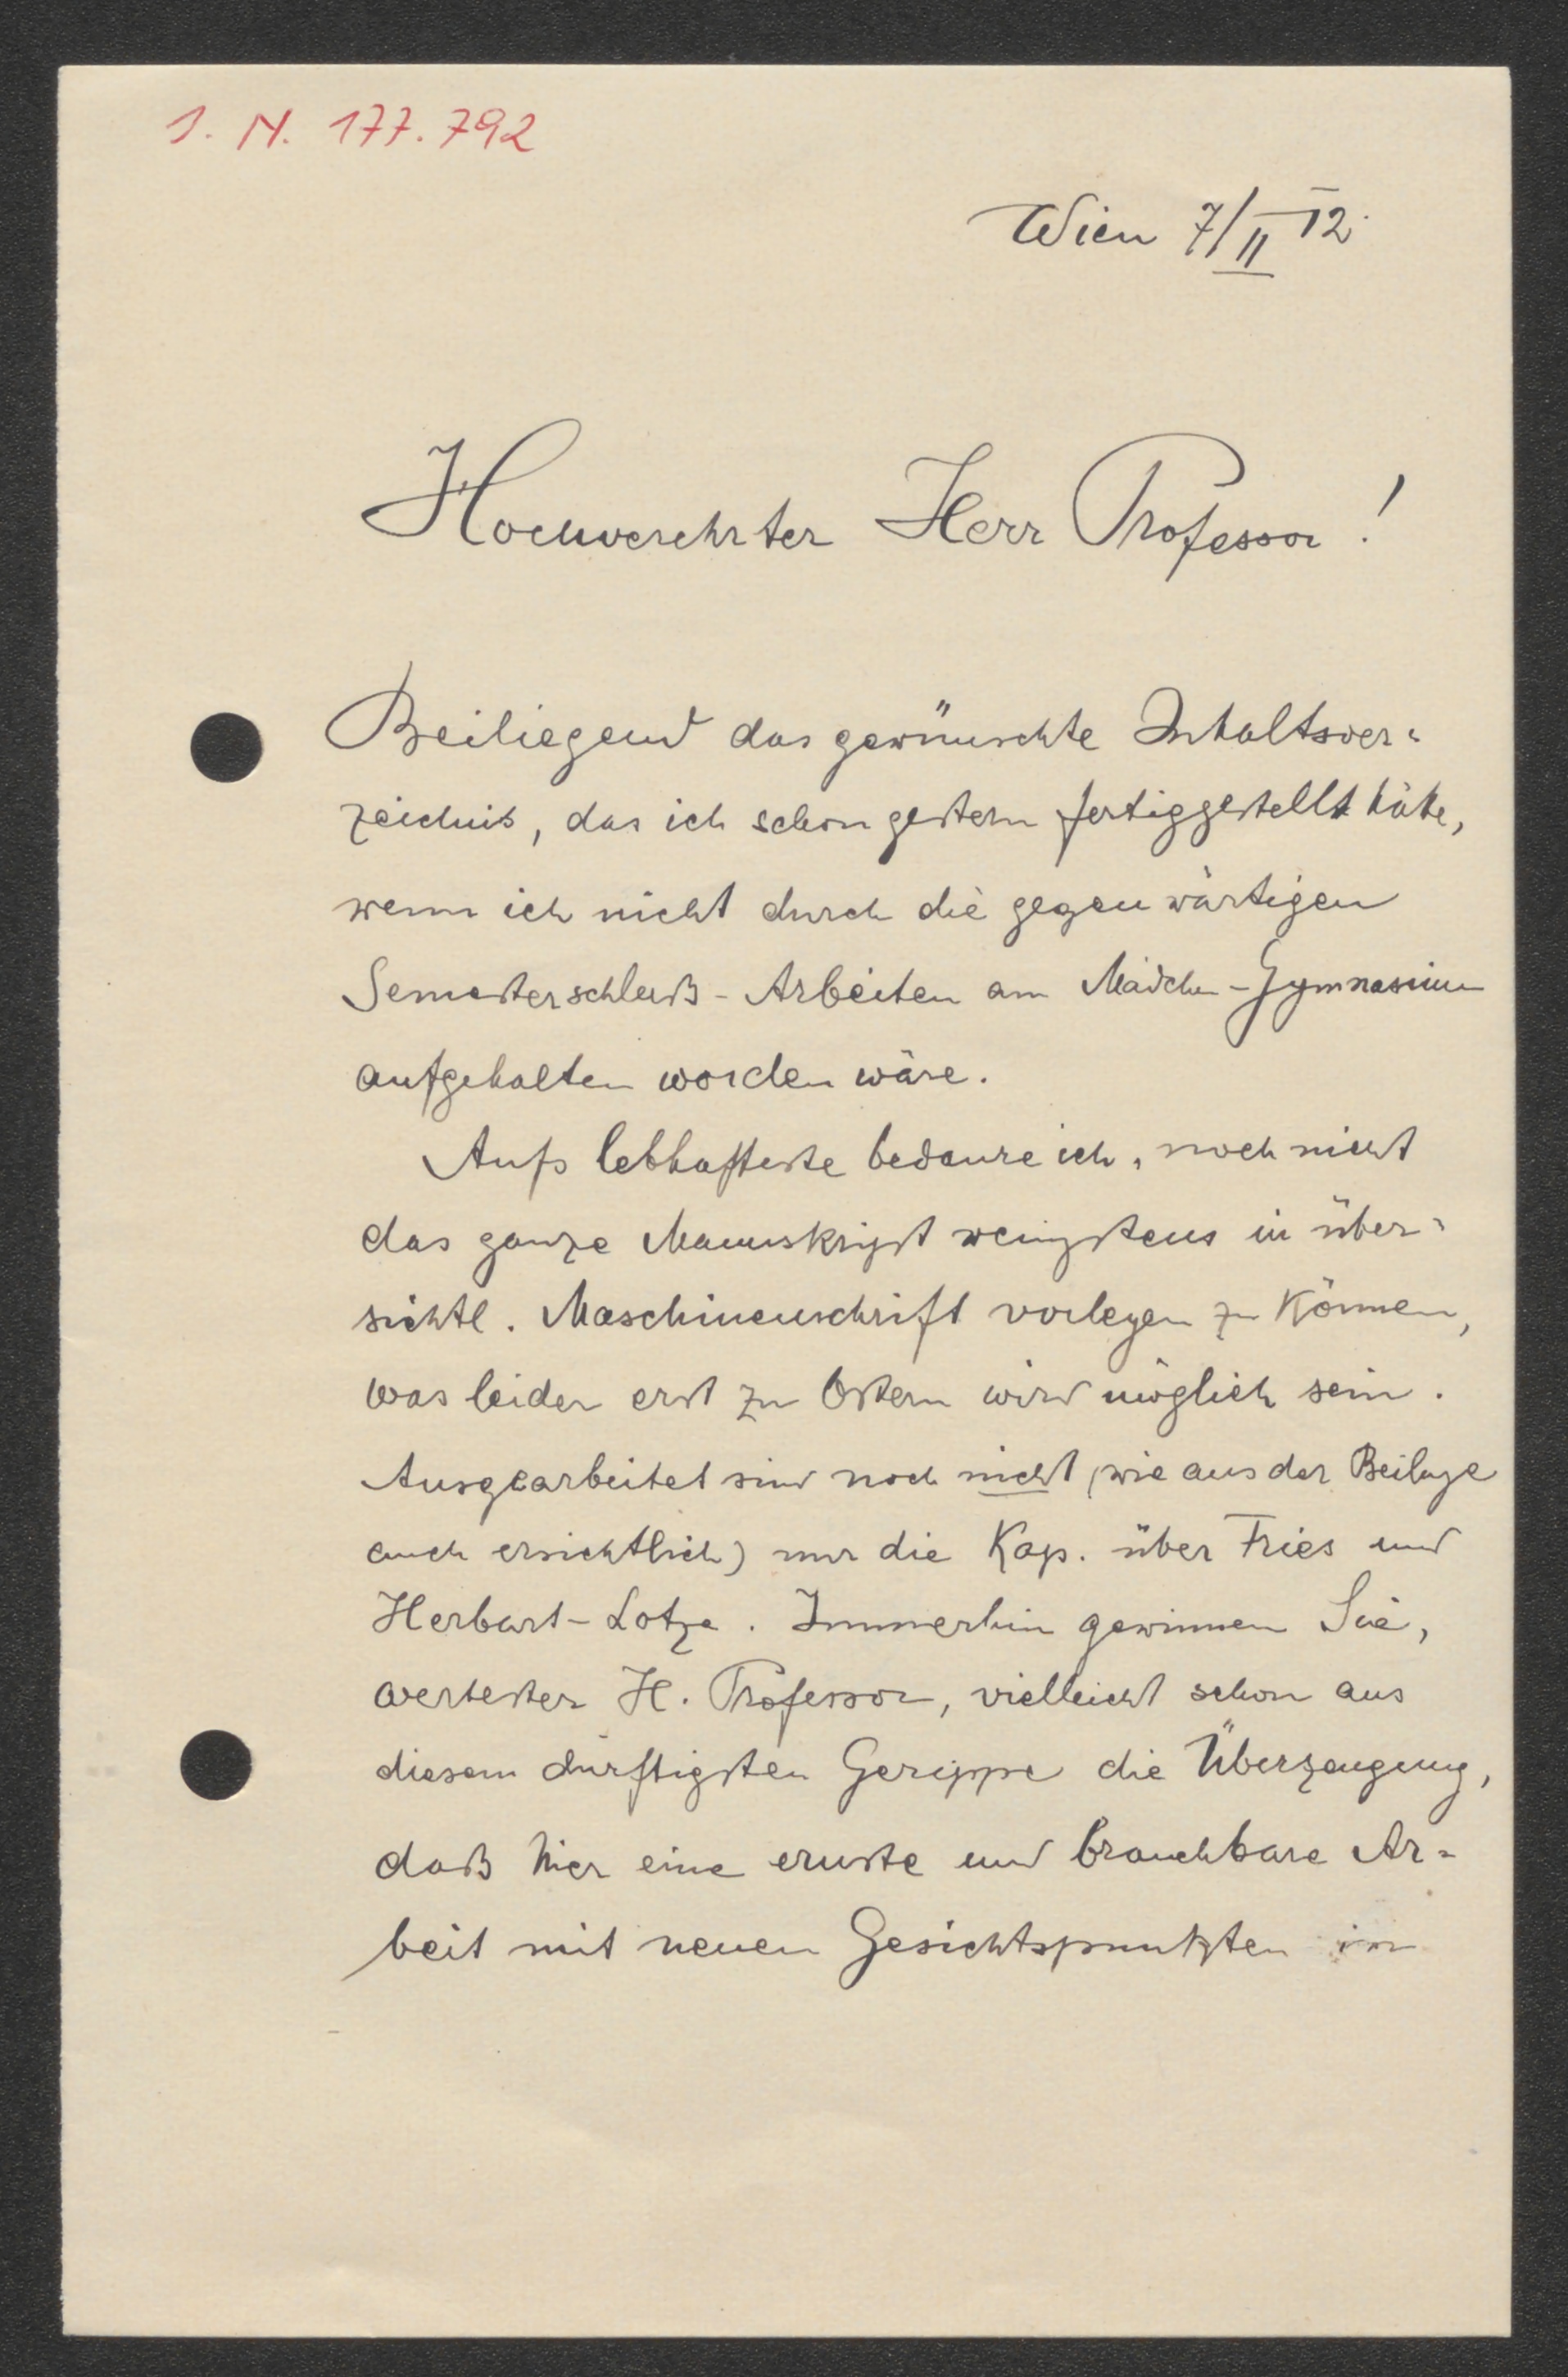 I. N. 177.792
Wien 7/II 12.
Hochverehrter Herr Professor!
Beiliegend das gewünschte Inhaltsver=
zeichnis, das ich schon gestern fertiggestellt hätte,
wenn ich nicht durch die gegenwärtigen
Semesterschluß-Arbeiten am Mädchen-Gymnasium
aufgehalten worden wäre.
Aufs lebhafteste bedaure ich, noch nicht
das ganze Manuskript wenigstens in über=
sichtl. Maschinenschrift vorlegen zu können,
was leider erst zu Ostern wird möglich sein.
Ausgearbeitet sind noch nicht (wie aus der Beilage
auch ersichtlich) nur die Kap. über Fries und
Herbart-Lotze. Immerhin gewinnen Sie,
wertester H. Professor, vielleicht schon aus
diesem dürftigsten Gerippe die Überzeugung,
daß hier eine ernste und brauchbare Ar=
beit mit neuen Gesichtspunkten im